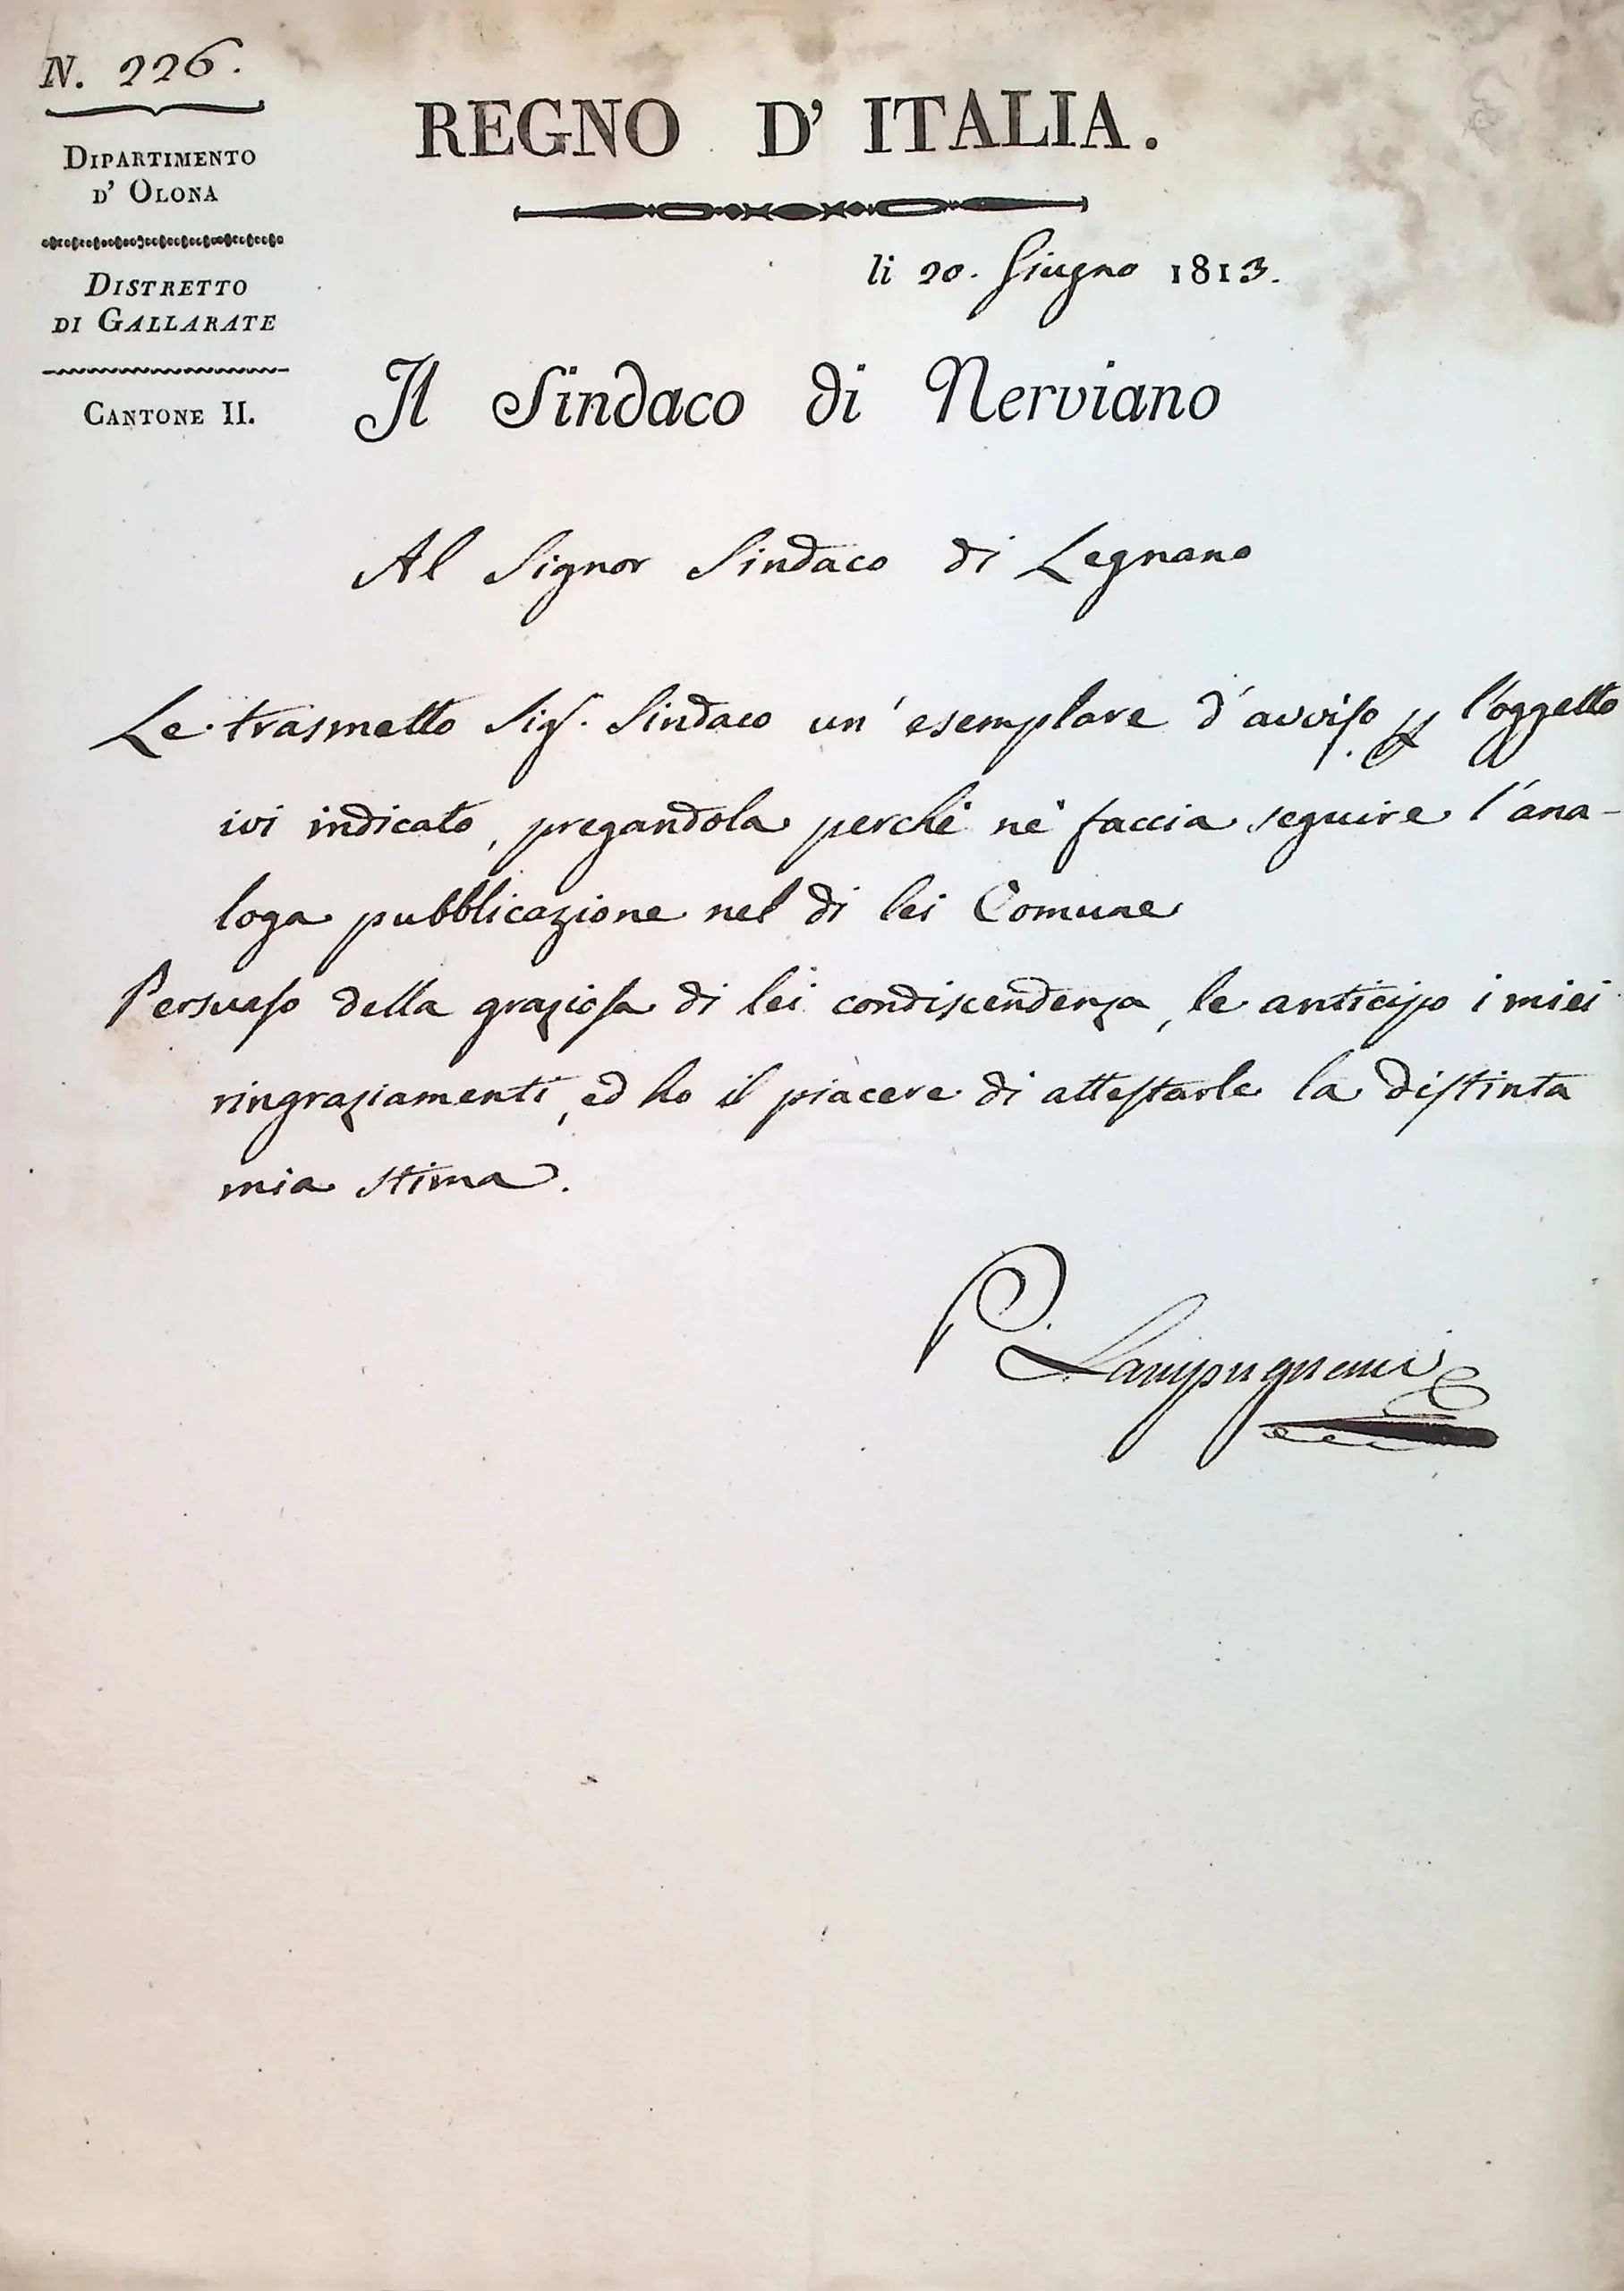 N. 226.
DIPARTIMENTO
D' OLONA
DISTRETTO
DI GALLARATE
CANTONE II.
REGNO D' ITALIA.
li 20. Giugno 1813.
Il Sindaco di Nerviano
Al Signor Sindaco di Legnano
Le trasmetto Sigʳ. Sindaco un' esemplare d'avviso l'oggetto
ivi indicato, pregandola perchè nè faccia seguire l'ana-
loga pubblicazione nel di lei Comune
Persuaso della graziosa di lei condiscendenza, le anticipo i miei
ringraziamenti, ed ho il piacere di attestarle la distinta
mia stima.
P. Lampugnani